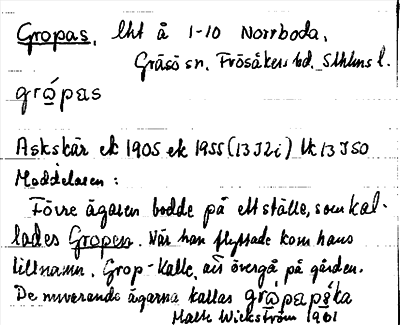 Gropas, lht å 1-10 Norrboda,
Gräsö sn, Frösåkers hd, Sthlms l.
grὼpas
Askskär ek 1905 ek 1955 (13 J 2 i) tk 13 J SO
Meddelaren:
Förre ägaren bodde på ett ställe, som kal-
lades Gropen. När han flyttade kom hans
tillnamn, Grop-Kalle, att övergå på gården.
De nuvarande ägarna kallas
Malte Wickström 1961